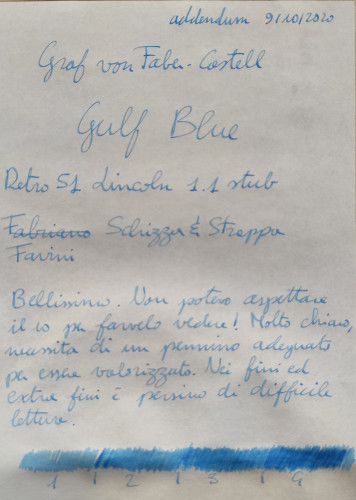 addendum 9/10/2020
Graf von Faber-Castell
Gulf Blue
Retro 51 Lincoln 1.1 stub
Fabriano Schizza & Strappa
Favini
Bellissimo. Non potevo aspettare
il 10 per farvelo vedere! Molto chiaro,
necessita di un pennino adeguato
per essere valorizzato. Nei fini ed
extra fini è persino di difficile
lettura.
1 2 3 4